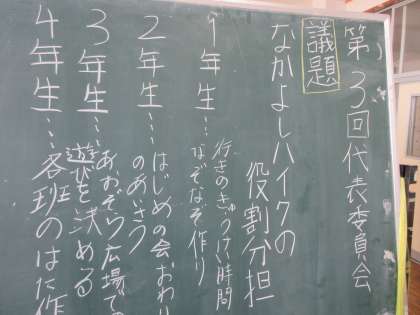 第3回代表委員会
議題
なかよしハイクの
役割分担
1年生…
行きのきゅうけい時間
なぞなぞ作り
2年生…
はじめの会、おわり
のあいさつ
3年生…
あおぞら広場での
遊びを決める
4年生…各班のはた作